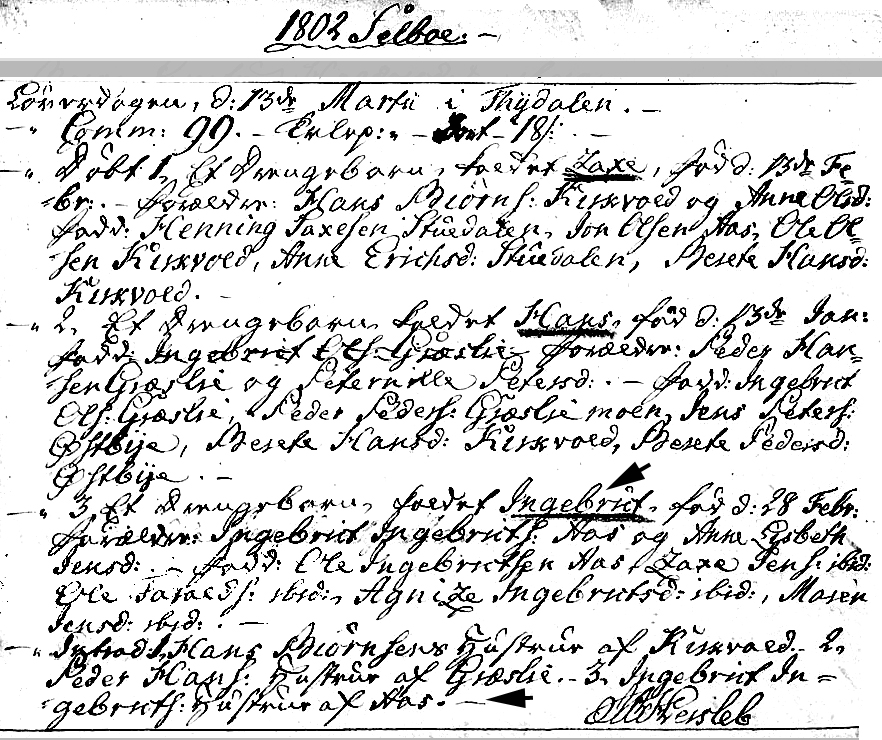 1802 Selboe. -
Löverdagen, d: 13de Martii i Thydalen. -
-" Comm: 99. - -18/:
-" Döbt 1, Et Drengebarn, kaldet Zaxe, föd d: 13de Fe-
br: - forældre: Hans Biörns: Kirkvold og Anne Olsd:
fadd: Henning Saxesen Stuedalen, Jon Olsen Aas, Ole Ol-
sen Kirkvold, Anne Erichsd: Stuedalen, Berete Hansd:
Kirkvold. -
-" 2, Et Drengebarn kaldet Hans, föd d: 13de Jan:
fadd: Ingebrict Ols: Græslie forældre: Peder Han-
sen Græslie og Peternille Petersd: - fadd: Ingebrict
Ols: Græslie, Peder Peders: Græsliemoen, Jens Peters:
Östbÿe, Berete Hansd: Kirkvold, Berete Pedersd:
Östbÿe. -
-" 3, Et Drengebarn, kaldet Ingebrict, föd d: 28 Febr:
forældre: Ingebrict Ingebricts: Aas og Anne Lisbeth
Jensd: - fadd: Ole Ingebrictsen Aas, Zaxe Jens: ibid:
Ole ibid:, Agnize Ingebrictsd: ibid:, Maren
Jensd: ibid: -
-" Introd: 1, Hans Biörnsens Hustrue af Kirkvold. - 2,
Peder Hans: Hustrue af Græslie. - 3, Ingebrict In=
gebricts: Hustrue af Aas. -